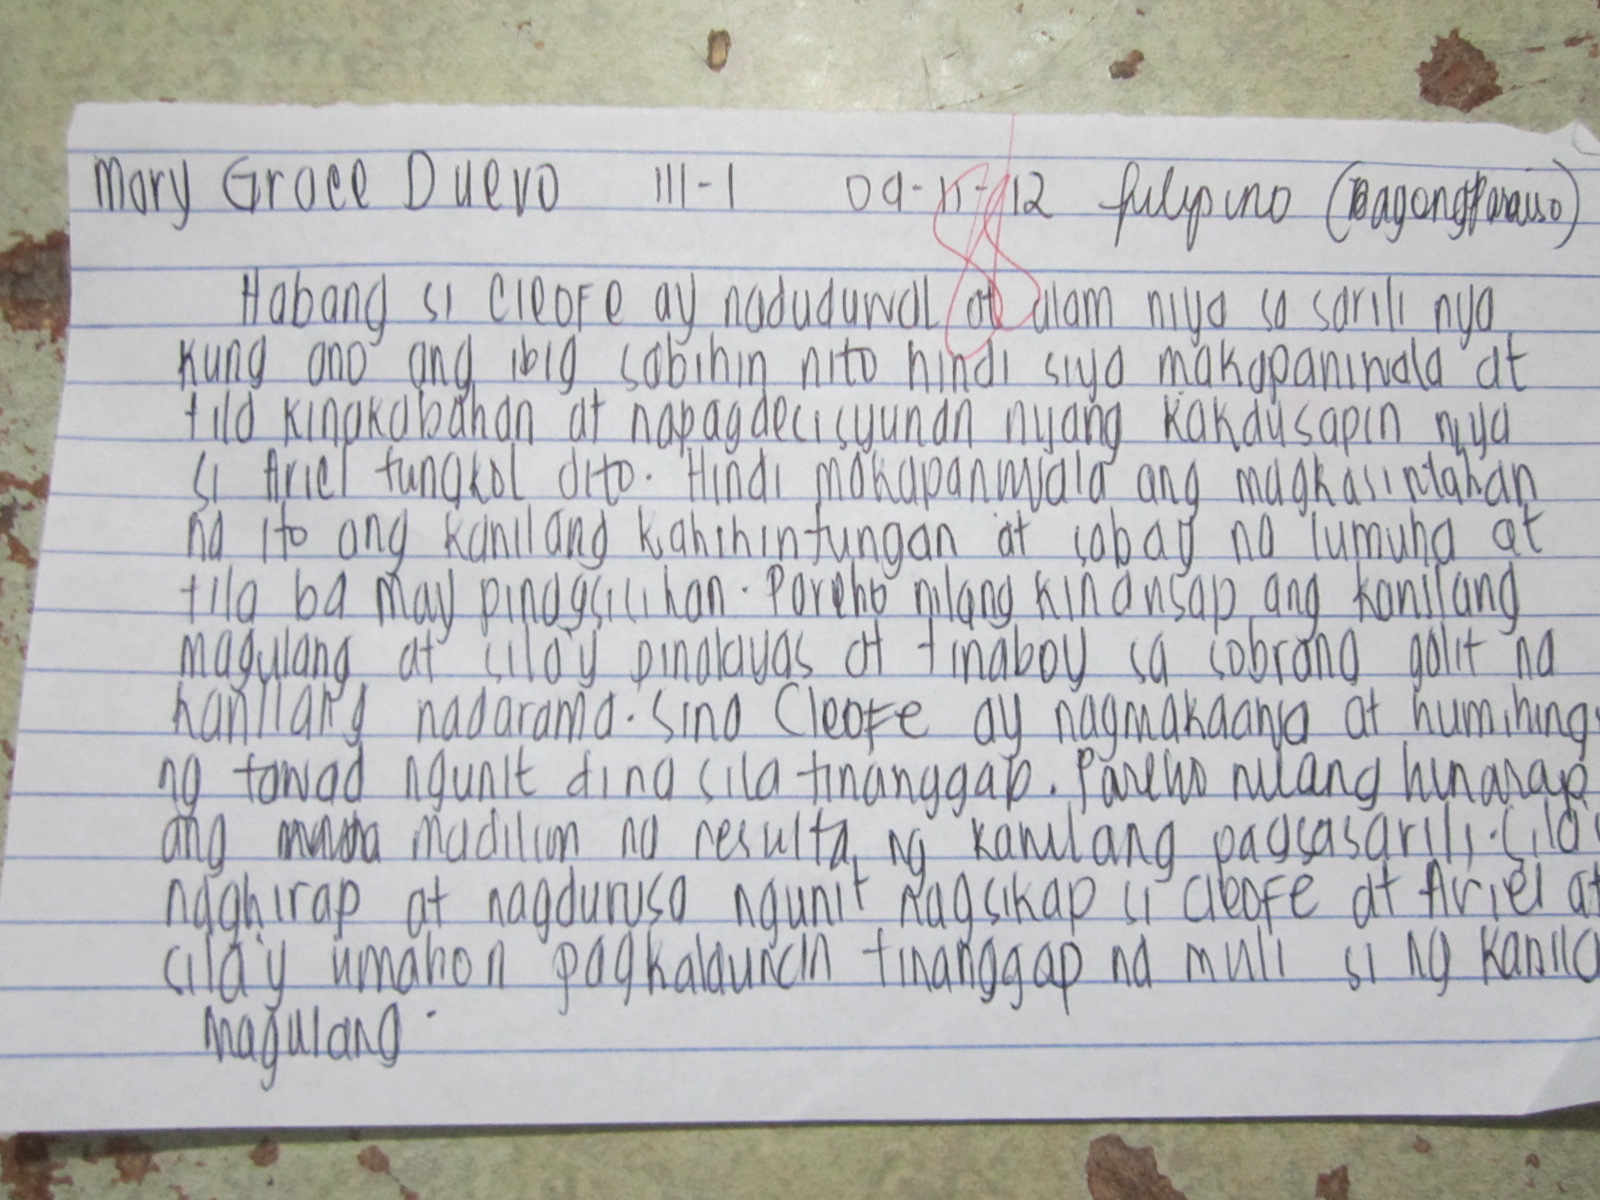 Mary Grace Duevo III-1 09-11-12 Filipino (Bagong Paraiso)
Habang si Cleofe ay naduduwal at alam niya sa sarili nya
kung ano ang ibig sabihin nito hindi siya makapaniwala at
tila kinakabahan at napagdecisyunan nyang kakausapin niya
si Ariel tungkol dito. Hindi makapaniwala ang magkasintahan
na ito ang kanilang kahihintungan at sabay na lumuha at
tila ba may pinagsisihan. Pareho nilang kinausap ang kanilang
magulang at sila'y pinalayas at tinaboy sa sobrang galit na
kanilang nadarama. Sina Cleofe ay nagmakaawa at humihing
ng tawad ngunit di na sila tinanggap. Pareho nilang hinarap
ang madilim na resulta ng kanilang pagsasarili. Sila'
naghirap at nagdurusa ngunit nagsikap si Cleofe at Ariel at
sila'y umahon pagkalauncin tinanggap na muli si ng kanila
magulang.